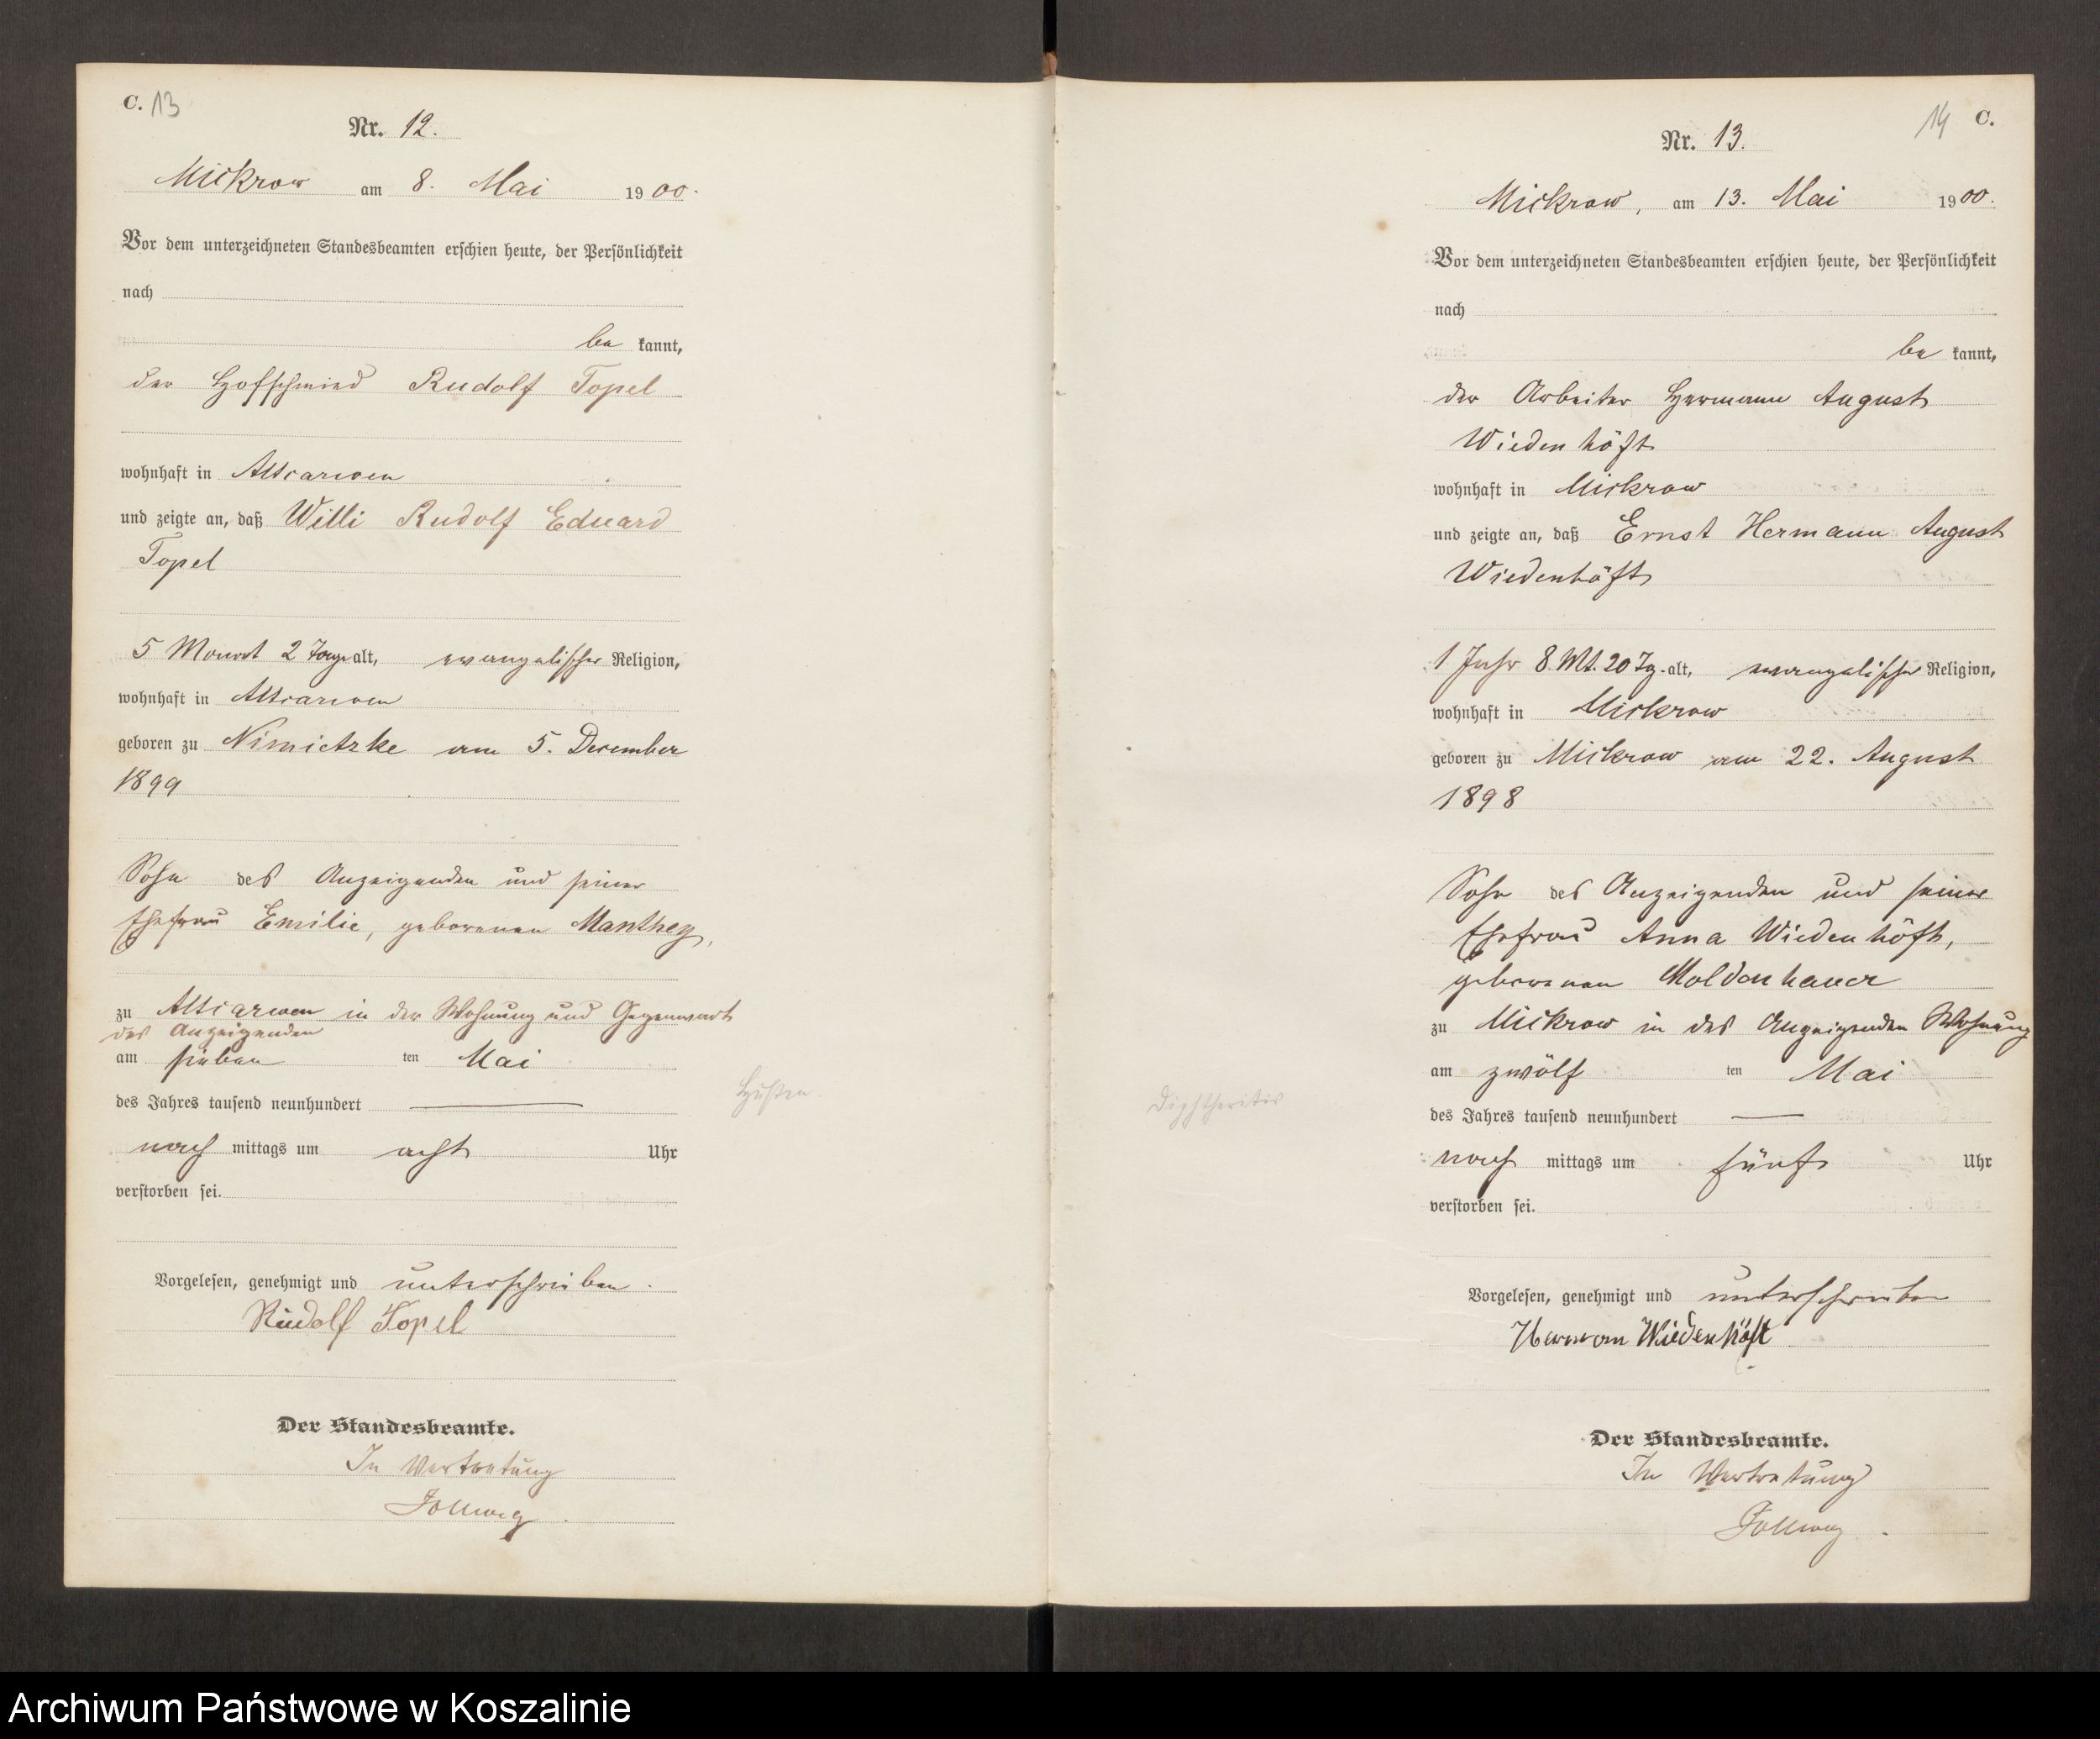 C. 13
Nr. 12.
Mickrow am 8. Mai 1900.
Vor dem unterzeichneten Standesbeamten erschien heute, der Persönlichkeit
nach
be kannt,
der Hofschmied Rudolf Topel
wohnhaft in Altcarwen
und zeigte an, daß Willi Rudolf Eduard
Topel
5 Monat 2 Tage alt, evangelischer Religion,
wohnhaft in Altcarwen
geboren zu Nimietzke am 5. Dezember
1899
Sohn des Anzeigenden und seiner
Ehefrau Emilie, geborenen Manthey,
zu Altcarwen in der Wohnung und Gegenwart
des Anzeigenden
am sieben ten Mai
des Jahres tausend neunhundert —
nach mittags um acht Uhr
verstorben sei.
Husten
Vorgelesen, genehmigt und unterschrieben.
Rudolf Topel
Der Standesbeamte.
In Vertretung
14 C.
Nr. 13.
Mickrow, am 13. Mai 1900.
Vor dem unterzeichneten Standesbeamten erschien heute, der Persönlichkeit
nach
be kannt,
der Arbeiter Hermann August
Wiedenhöft
wohnhaft in Mickrow
und zeigte an, daß Ernst Hermann August
Wiedenhöft
1 Jahr 8 Mt. 20 Tg. alt, evangelischer Religion,
wohnhaft in Mickrow
geboren zu Mickrow am 22. August
1898
Sohn des Anzeigenden und seiner
Ehefrau Anna Wiedenhöft,
geborenen Moldenhauer
zu Mickrow in des Anzeigenden Wohnung
am zwölf ten Mai
des Jahres tausend neunhundert —
nach mittags um fünf Uhr
verstorben sei.
Diphtheritis
Vorgelesen, genehmigt und unterschrieben
Herman Wiedenhöft
Der Standesbeamte.
In Vertretung
Archiwum Państwowe w Koszalinie